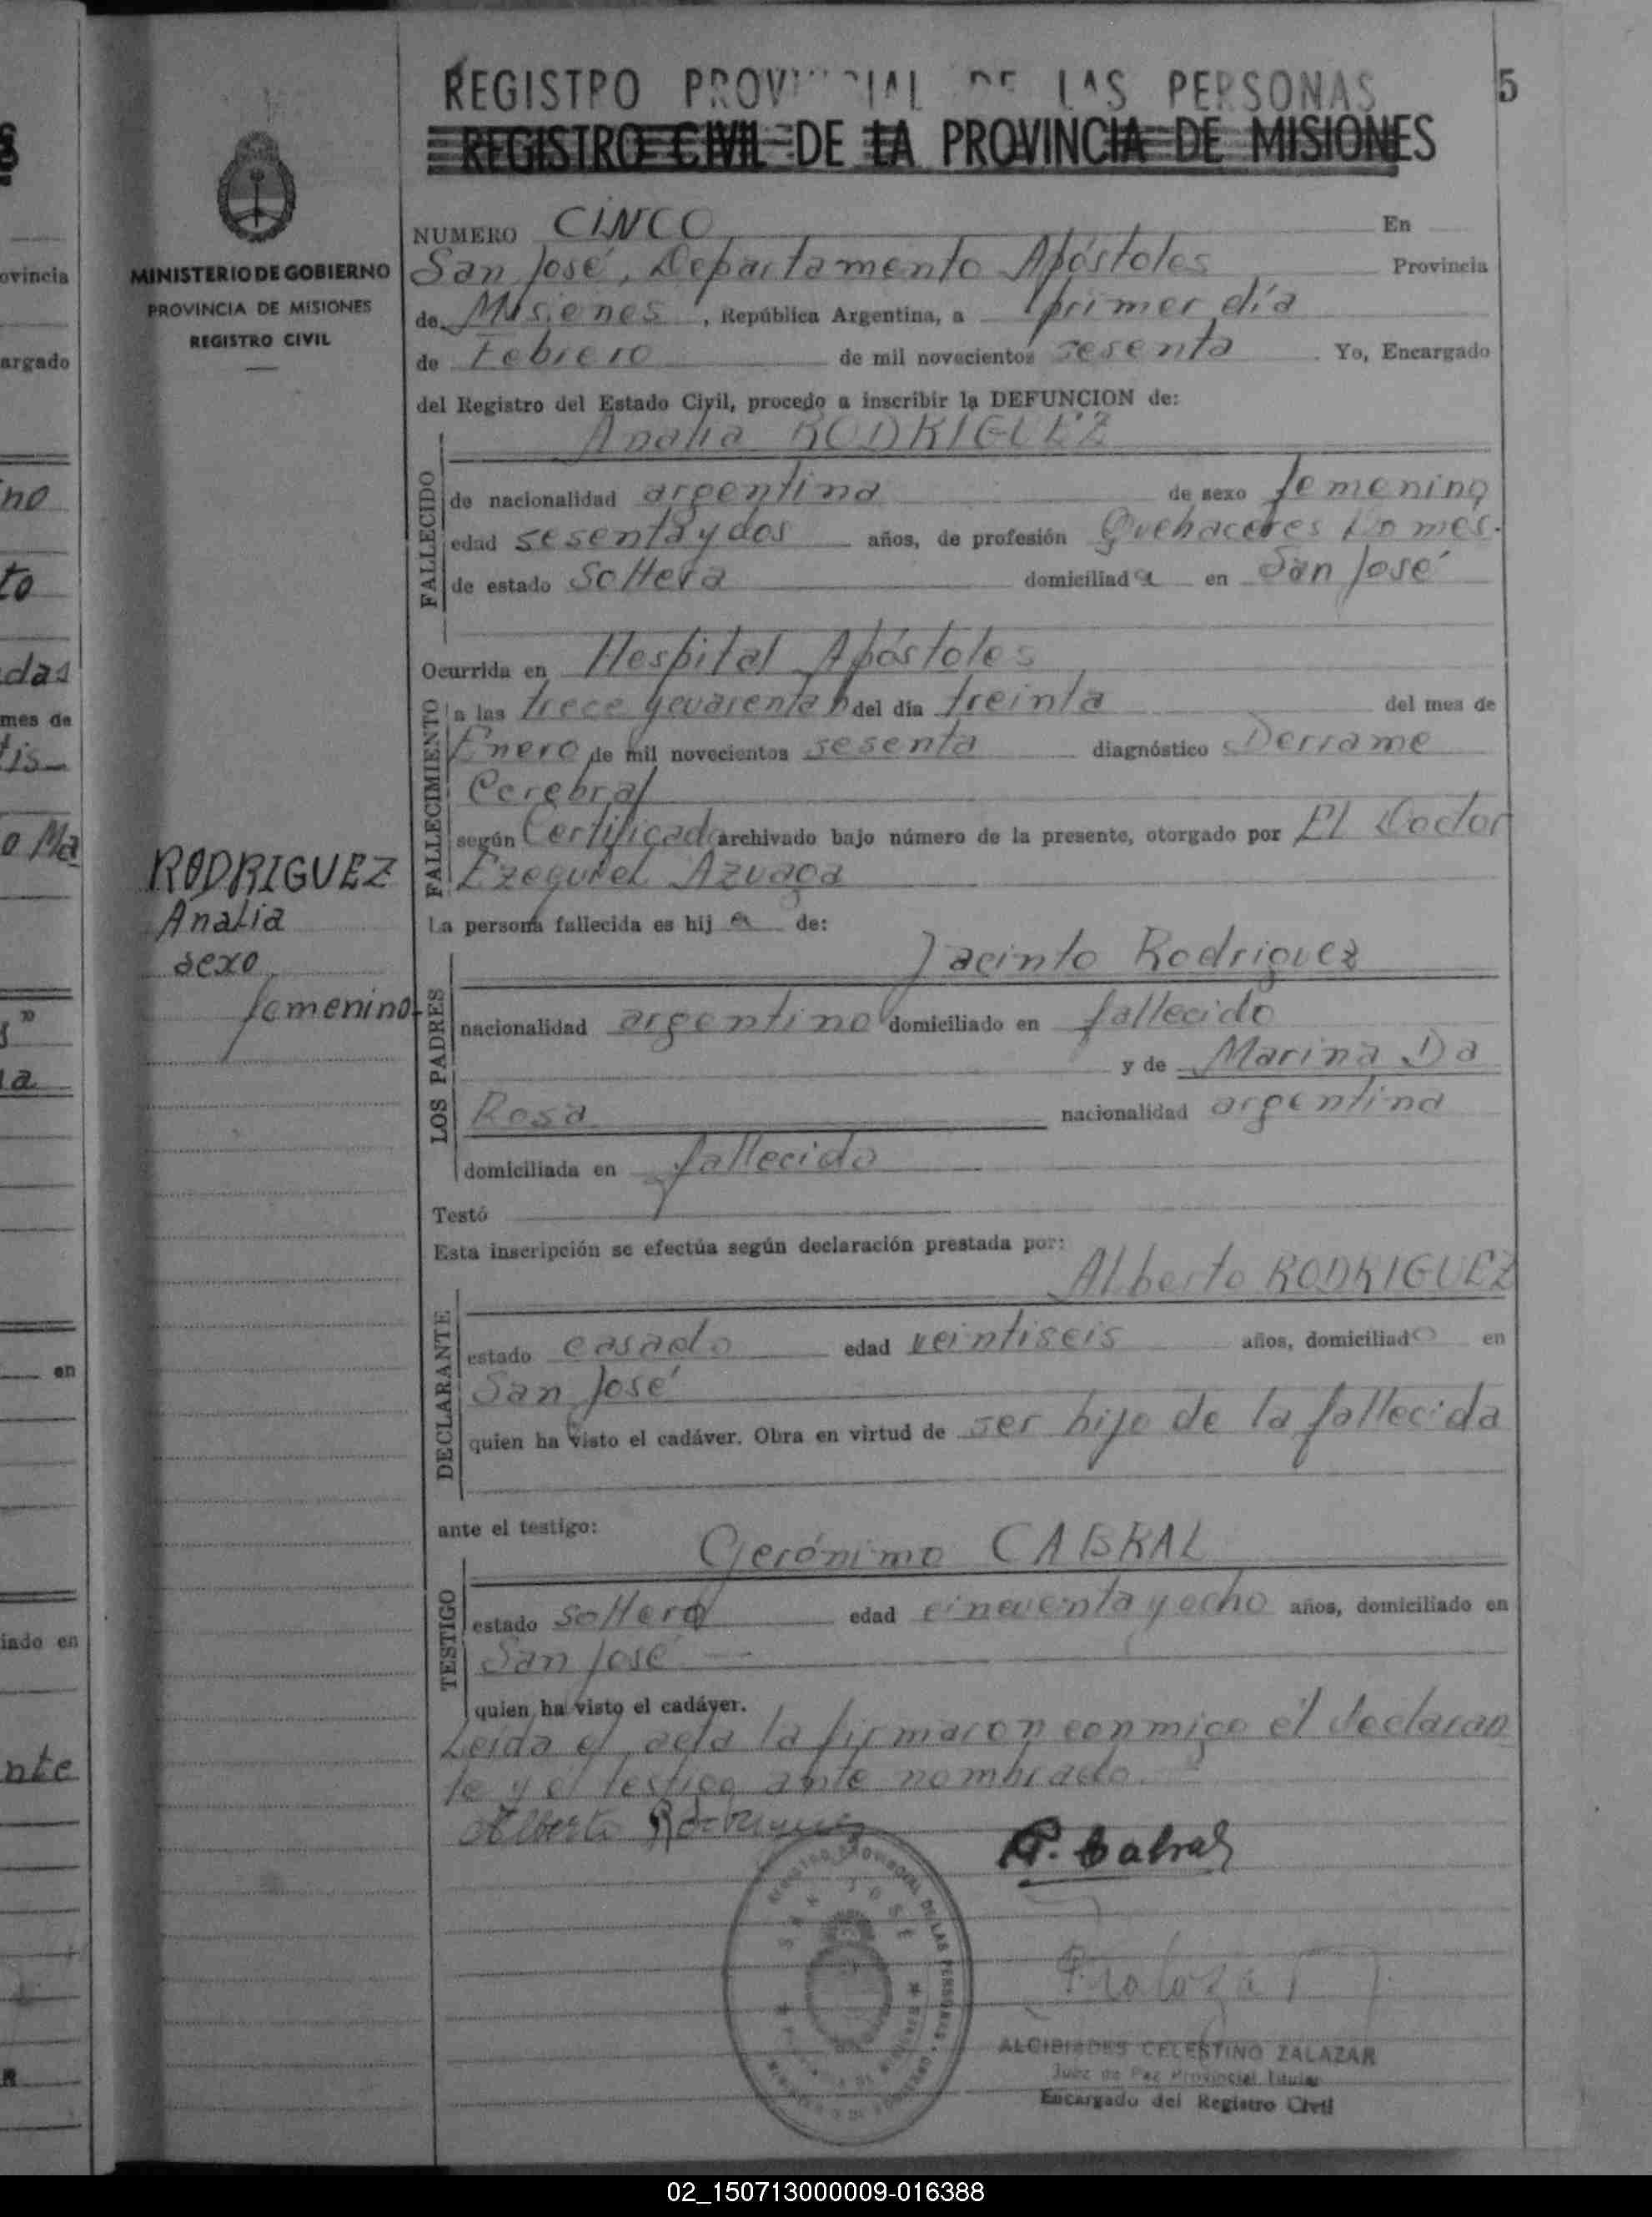 REGISTRO PROVINCIAL DE LAS PERSONAS
5
REGISTRO CIVIL DE LA PROVINCIA DE MISIONES
NUMERO CINCO En
San José, Departamento Apóstoles Provincia
de Misiones, República Argentina, a primer día
de Febrero de mil novecientos sesenta. Yo, Encargado
del Registro del Estado Civil, procedo a inscribir la DEFUNCION de:
Analia RODRIGUEZ
MINISTERIO DE GOBIERNO
PROVINCIA DE MISIONES
REGISTRO CIVIL
FALLECIDO
de nacionalidad argentina de sexo femenino
edad sesenta y dos años, de profesión Quehaceres Domes.
de estado Soltera domiciliada en San José
FALLECIMIENTO
Ocurrida en Hospital Apóstoles
a las trece y cuarenta h del día treinta del mes de
Enero de mil novecientos sesenta diagnóstico Derrame
Cerebral
según Certificado archivado bajo número de la presente, otorgado por El Doctor
Ezequiel Azuaga
RODRIGUEZ
Analia
sexo
femenino
La persona fallecida es hija de:
LOS PADRES
Jacinto Rodriguez
nacionalidad argentino domiciliado en fallecido
y de Marina Da
Rosa nacionalidad argentina
domiciliada en fallecido
Testó
Esta inscripción se efectúa según declaración prestada por:
DECLARANTE
Alberto RODRIGUEZ
estado casado edad veintiseis años, domiciliado en
San José
quien ha visto el cadáver. Obra en virtud de ser hijo de la fallecida
ante el testigo:
TESTIGO
Gerónimo CABRAL
estado soltero edad cincuenta y ocho años, domiciliado en
San José
quien ha visto el cadáver.
Leida el acta la firmaron conmigo el declaran
te y el testigo ante nombrado.
Alberto Rodriguez
G. Cabral
REGISTRO PROVINCIAL DE LAS PERSONAS
SAN JOSE
ALCIBIADES CELESTINO ZALAZAR
Juez de Paz Provincial Titular
Encargado del Registro Civil
ovincia
argado
no
to
das
mes de
tis
o Ma
a
en
iado en
nte
02_150713000009-016388